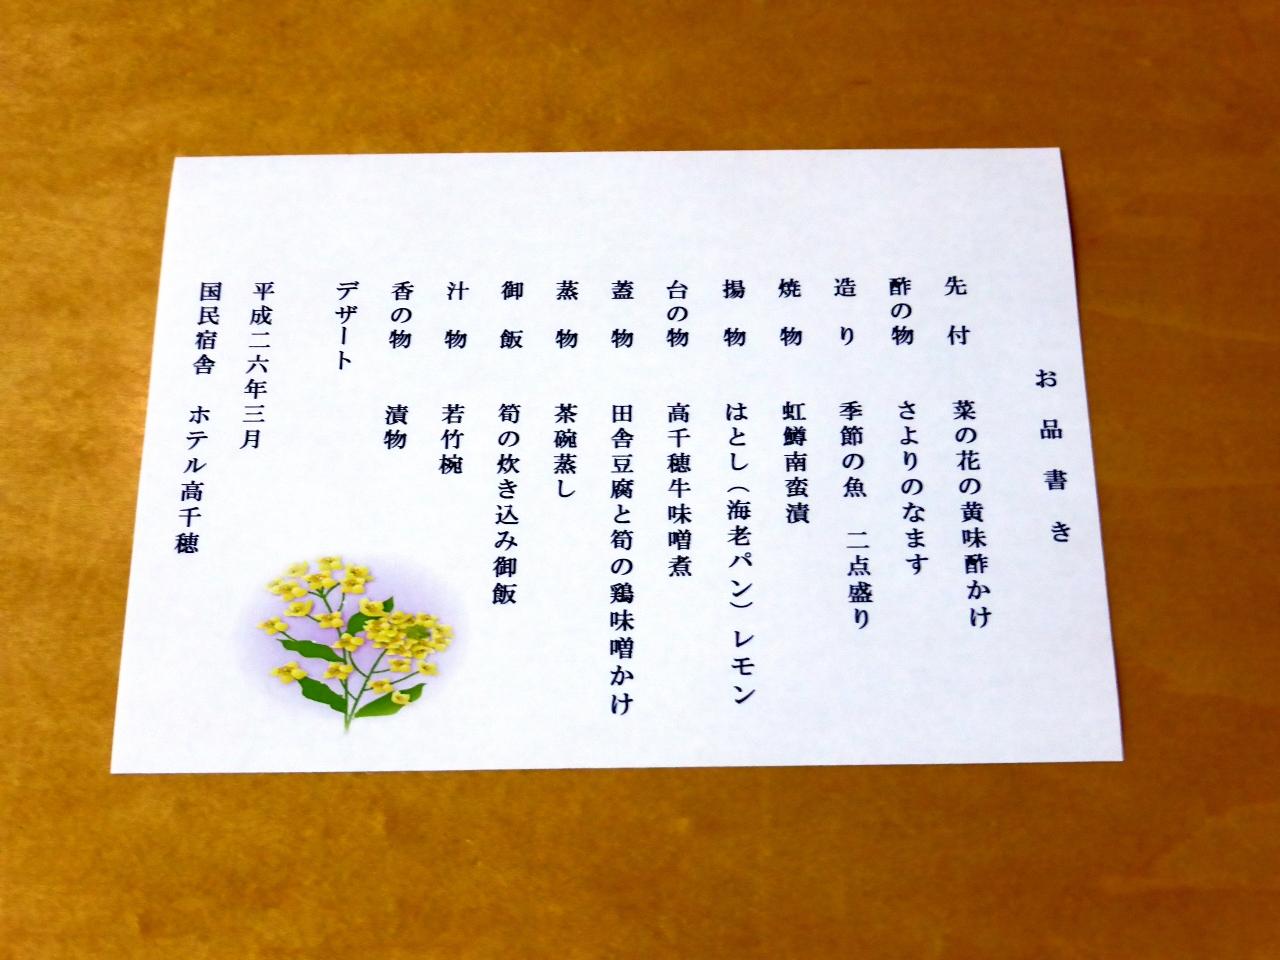 お品書き
先付 菜の花の黄味酢かけ
酢の物 さよりのなます
造り 季節の魚 二点盛り
焼物 虹鱒南蛮漬
揚物 はとし（海老パン）レモン
台の物 高千穂牛味噌煮
蓋物 田舎豆腐と筍の鶏味噌かけ
蒸物 茶碗蒸し
御飯 筍の炊き込み御飯
汁物 若竹椀
香の物 漬物
デザート
平成二六年三月
国民宿舎 ホテル高千穂